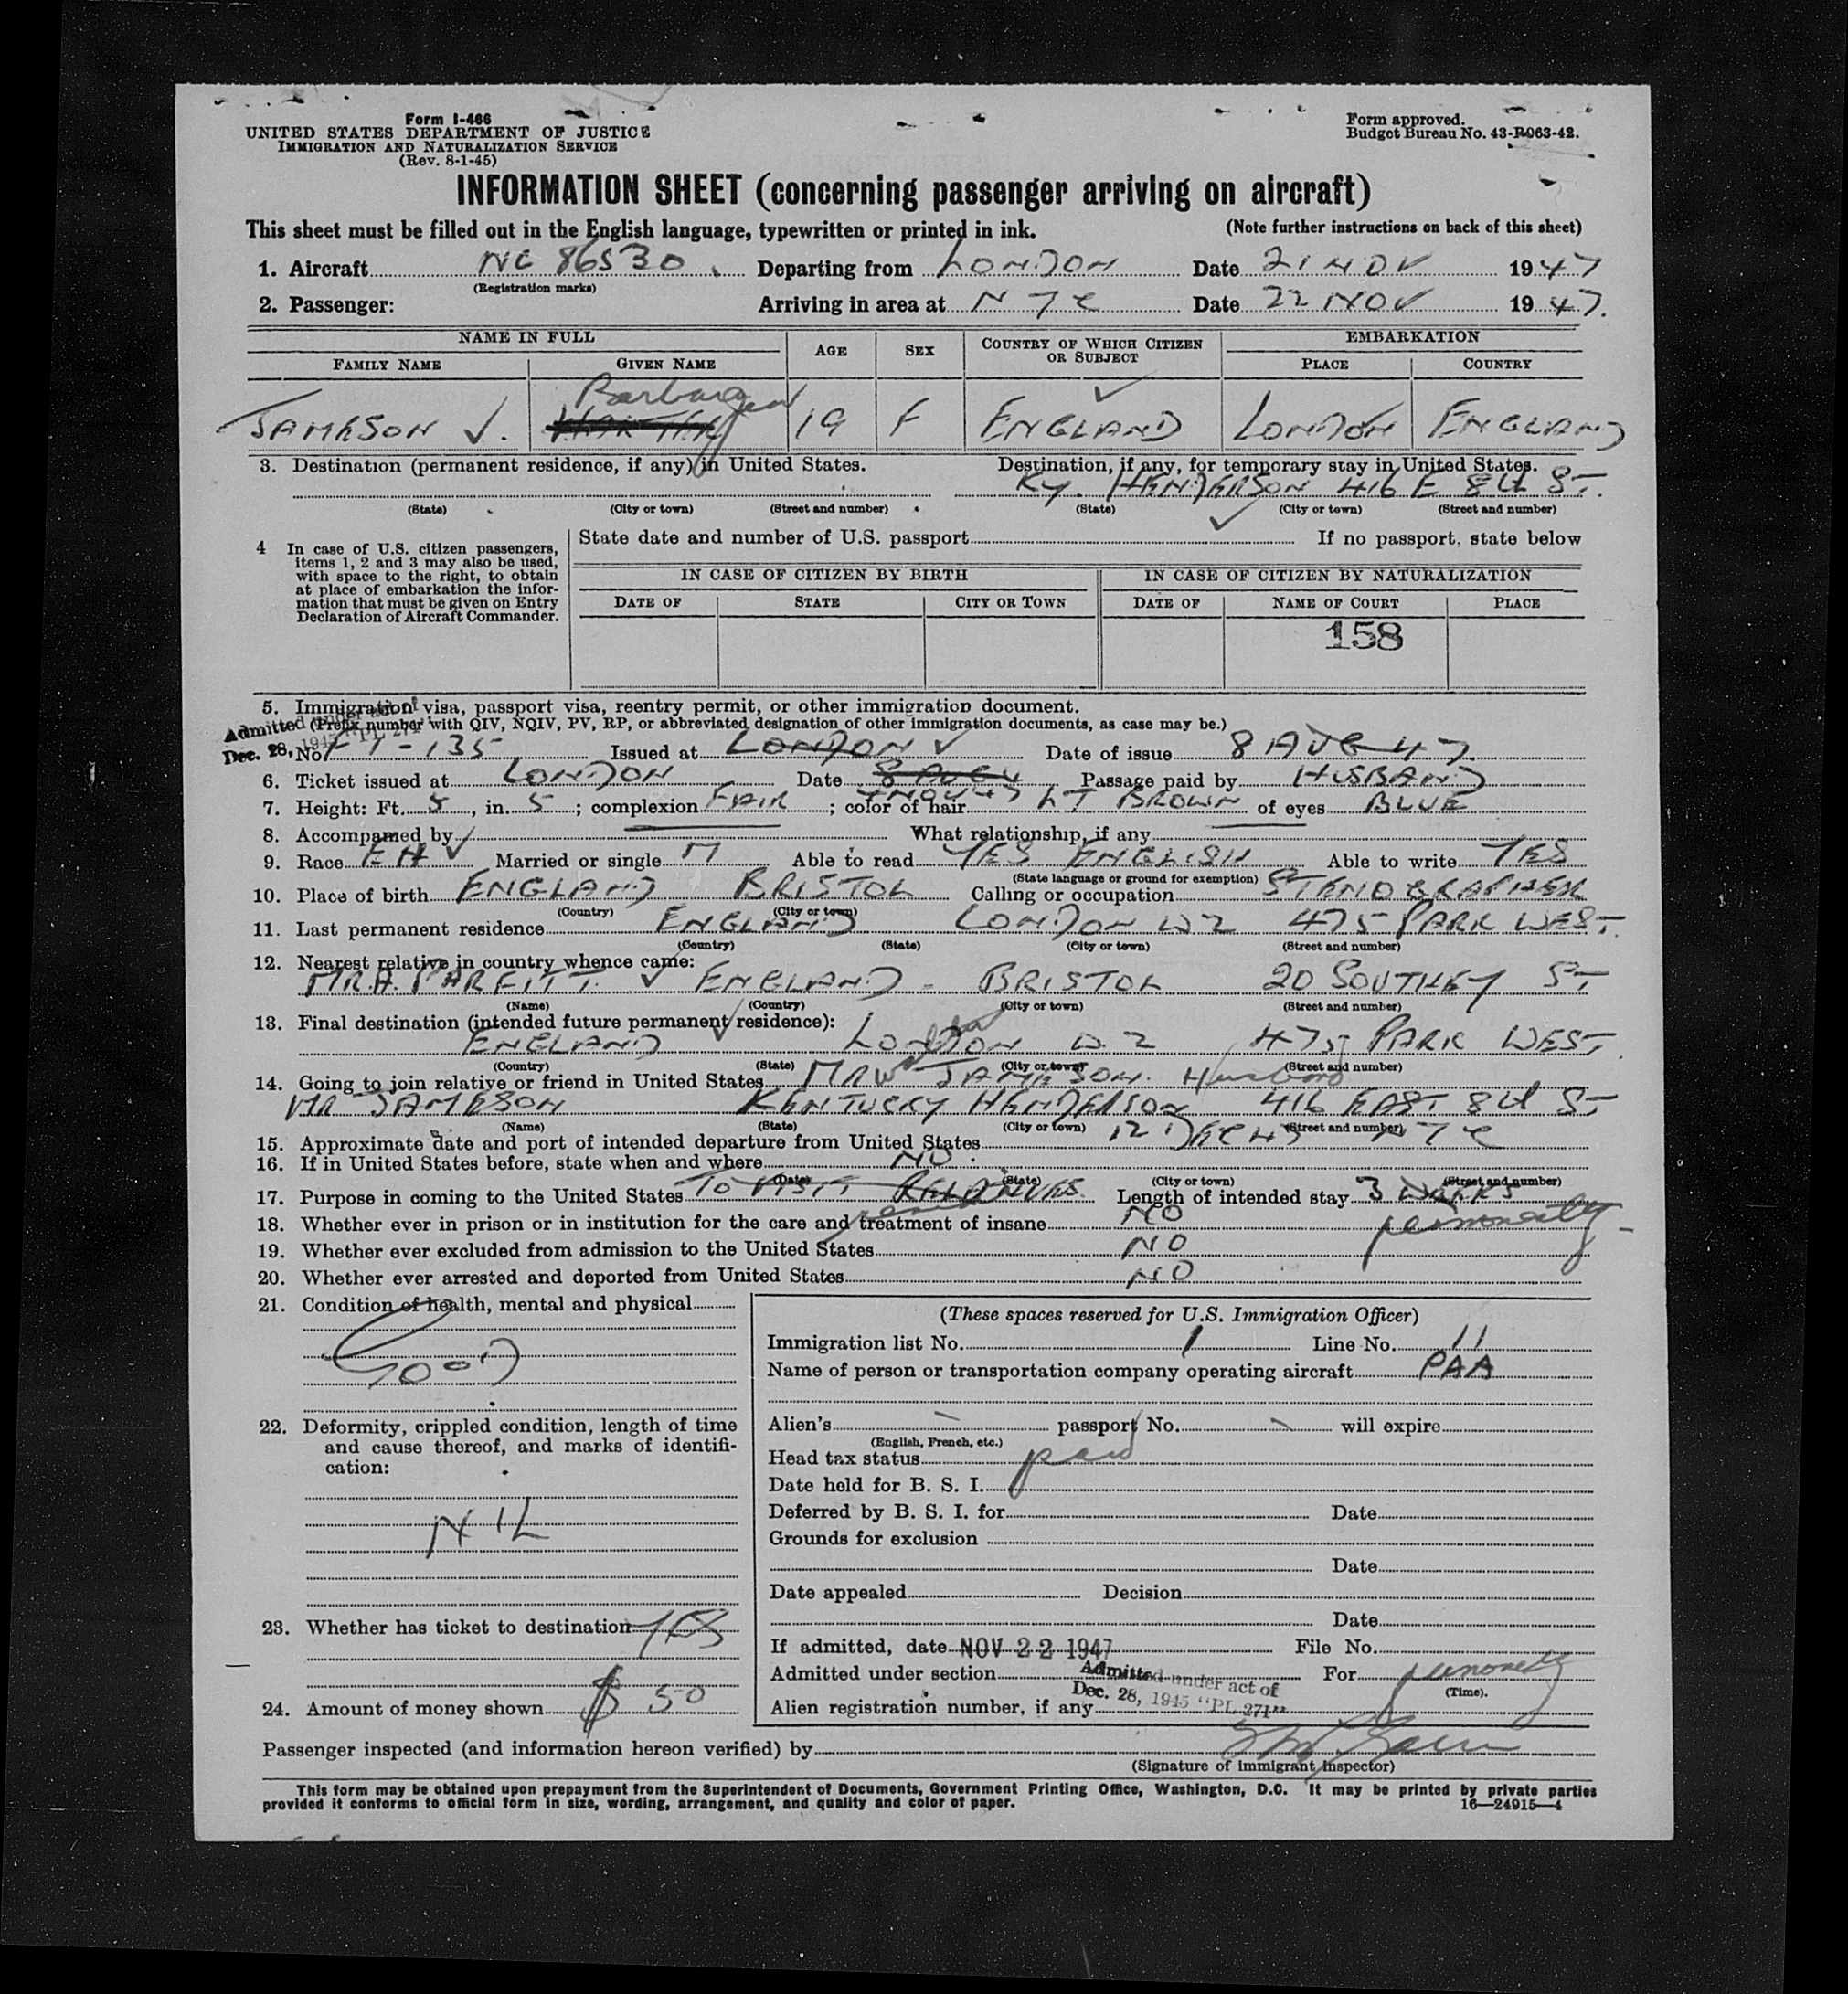 Form I-466
UNITED STATES DEPARTMENT OF JUSTICE
IMMIGRATION AND NATURALIZATION SERVICE
(Rev. 8-1-45)
Form approved.
Budget Bureau No. 43-R063-42.
INFORMATION SHEET (concerning passenger arriving on aircraft)
This sheet must be filled out in the English language, typewritten or printed in ink. (Note further instructions on back of this sheet)
1. Aircraft NC 86530 Departing from LONDON Date 21 NOV 1947
(Registration marks)
2. Passenger: Arriving in area at N Y C Date 22 NOV 1947.
NAME IN FULL AGE SEX COUNTRY OF WHICH CITIZEN OR SUBJECT EMBARKATION
FAMILY NAME GIVEN NAME PLACE COUNTRY
Barbara Jean
JAMESON 19 F ENGLAND LONDON ENGLAND
3. Destination (permanent residence, if any) in United States. Destination, if any, for temporary stay in United States.
Ky. HENDERSON 416 E 8th ST.
(State) (City or town) (Street and number) (State) (City or town) (Street and number)
4 In case of U.S. citizen passengers, items 1, 2 and 3 may also be used, with space to the right, to obtain at place of embarkation the information that must be given on Entry Declaration of Aircraft Commander.
State date and number of U.S. passport If no passport, state below
IN CASE OF CITIZEN BY BIRTH IN CASE OF CITIZEN BY NATURALIZATION
DATE OF STATE CITY OR TOWN DATE OF NAME OF COURT PLACE
158
5. Immigration visa, passport visa, reentry permit, or other immigration document.
(Prefix number with QIV, NQIV, PV, RP, or abbreviated designation of other immigration documents, as case may be.)
Admitted under act of
Dec. 28, 1945 "PL 271"
No. -135 Issued at LONDON Date of issue 8 AUG 47
6. Ticket issued at LONDON Date 8 AUG 4 Passage paid by HUSBAND
7. Height: Ft. 5, in. 5; complexion FAIR; color of hair LT BROWN of eyes BLUE
8. Accompanied by What relationship, if any
9. Race Married or single M Able to read YES ENGLISH Able to write YES
(State language or ground for exemption)
10. Place of birth ENGLAND BRISTOL Calling or occupation STENOGRAPHER
(Country) (City or town)
11. Last permanent residence ENGLAND LONDON W2 475 PARK WEST.
(Country) (State) (City or town) (Street and number)
12. Nearest relative in country whence came:
MR A. PARFITT ENGLAND - BRISTOL 20 SOUTHEY ST
(Name) (Country) (City or town) (Street and number)
13. Final destination (intended future permanent residence):
ENGLAND LONDON W.2 475 PARK WEST
(Country) (State) (City or town) (Street and number)
14. Going to join relative or friend in United States MR W JAMESON. Husband
MR JAMESON KENTUCKY HENDERSON 416 EAST 8th ST
(Name) (State) (City or town) (Street and number)
15. Approximate date and port of intended departure from United States 12 DEC 47 NYC
16. If in United States before, state when and where NO.
(Date) (State) (City or town) (Street and number)
17. Purpose in coming to the United States TO VISIT RELATIVES Length of intended stay 3 WEEKS
reside permanently
18. Whether ever in prison or in institution for the care and treatment of insane NO
19. Whether ever excluded from admission to the United States NO
20. Whether ever arrested and deported from United States NO
21. Condition of health, mental and physical
GOOD
22. Deformity, crippled condition, length of time and cause thereof, and marks of identification:
NIL
23. Whether has ticket to destination YES
24. Amount of money shown $ 50
(These spaces reserved for U.S. Immigration Officer)
Immigration list No. 1 Line No. 11
Name of person or transportation company operating aircraft PAA
Alien's - passport No. will expire
(English, French, etc.)
Head tax status paid
Date held for B. S. I.
Deferred by B. S. I. for Date
Grounds for exclusion
Date
Date appealed Decision
Date
If admitted, date NOV 22 1947 File No.
Admitted under section For permanently
(Time).
Admitted under act of
Dec. 28, 1945 "PL 271"
Alien registration number, if any
Passenger inspected (and information hereon verified) by
(Signature of Immigrant Inspector)
This form may be obtained upon prepayment from the Superintendent of Documents, Government Printing Office, Washington, D.C. It may be printed by private parties
provided it conforms to official form in size, wording, arrangement, and quality and color of paper. 16—24915—4